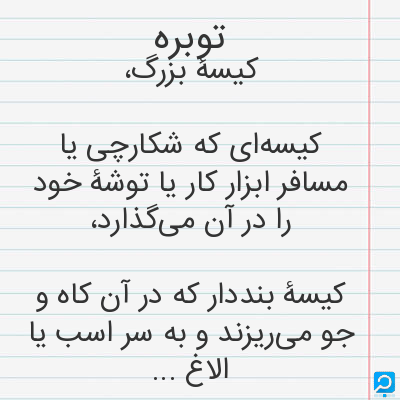 توبره
کیسهٔ بزرگ،
کیسه‌ای که شکارچی یا
مسافر ابزار کار یا توشهٔ خود
را در آن می‌گذارد،
کیسهٔ بنددار که در آن کاه و
جو می‌ریزند و به سر اسب یا
الاغ ...